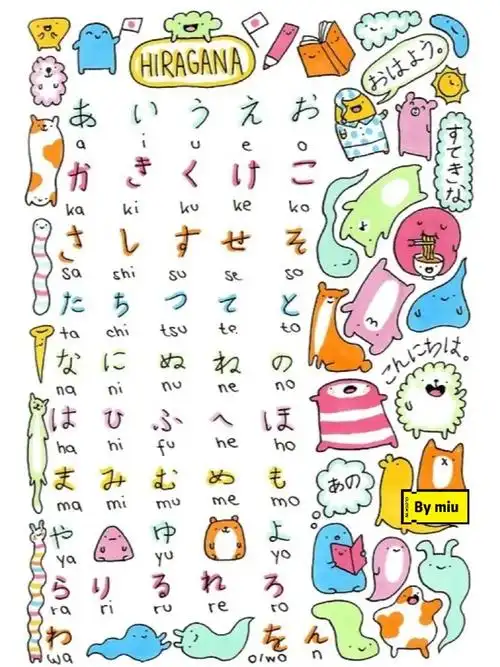 HIRAGANA
おはよう。
すてきな
あ い う え お
a i u e o
か き く け こ
ka ki ku ke ko
さ し す せ そ
sa shi su se so
た ち つ て と
ta chi tsu te to
な に ぬ ね の
na ni nu ne no
こんにちは。
は ひ ふ へ ほ
ha hi fu he ho
ま み む め も
ma mi mu me mo
あの
By miu
や ゆ よ
ya yu yo
ら り る れ ろ
ra ri ru re ro
わ を ん
wa o/wo n